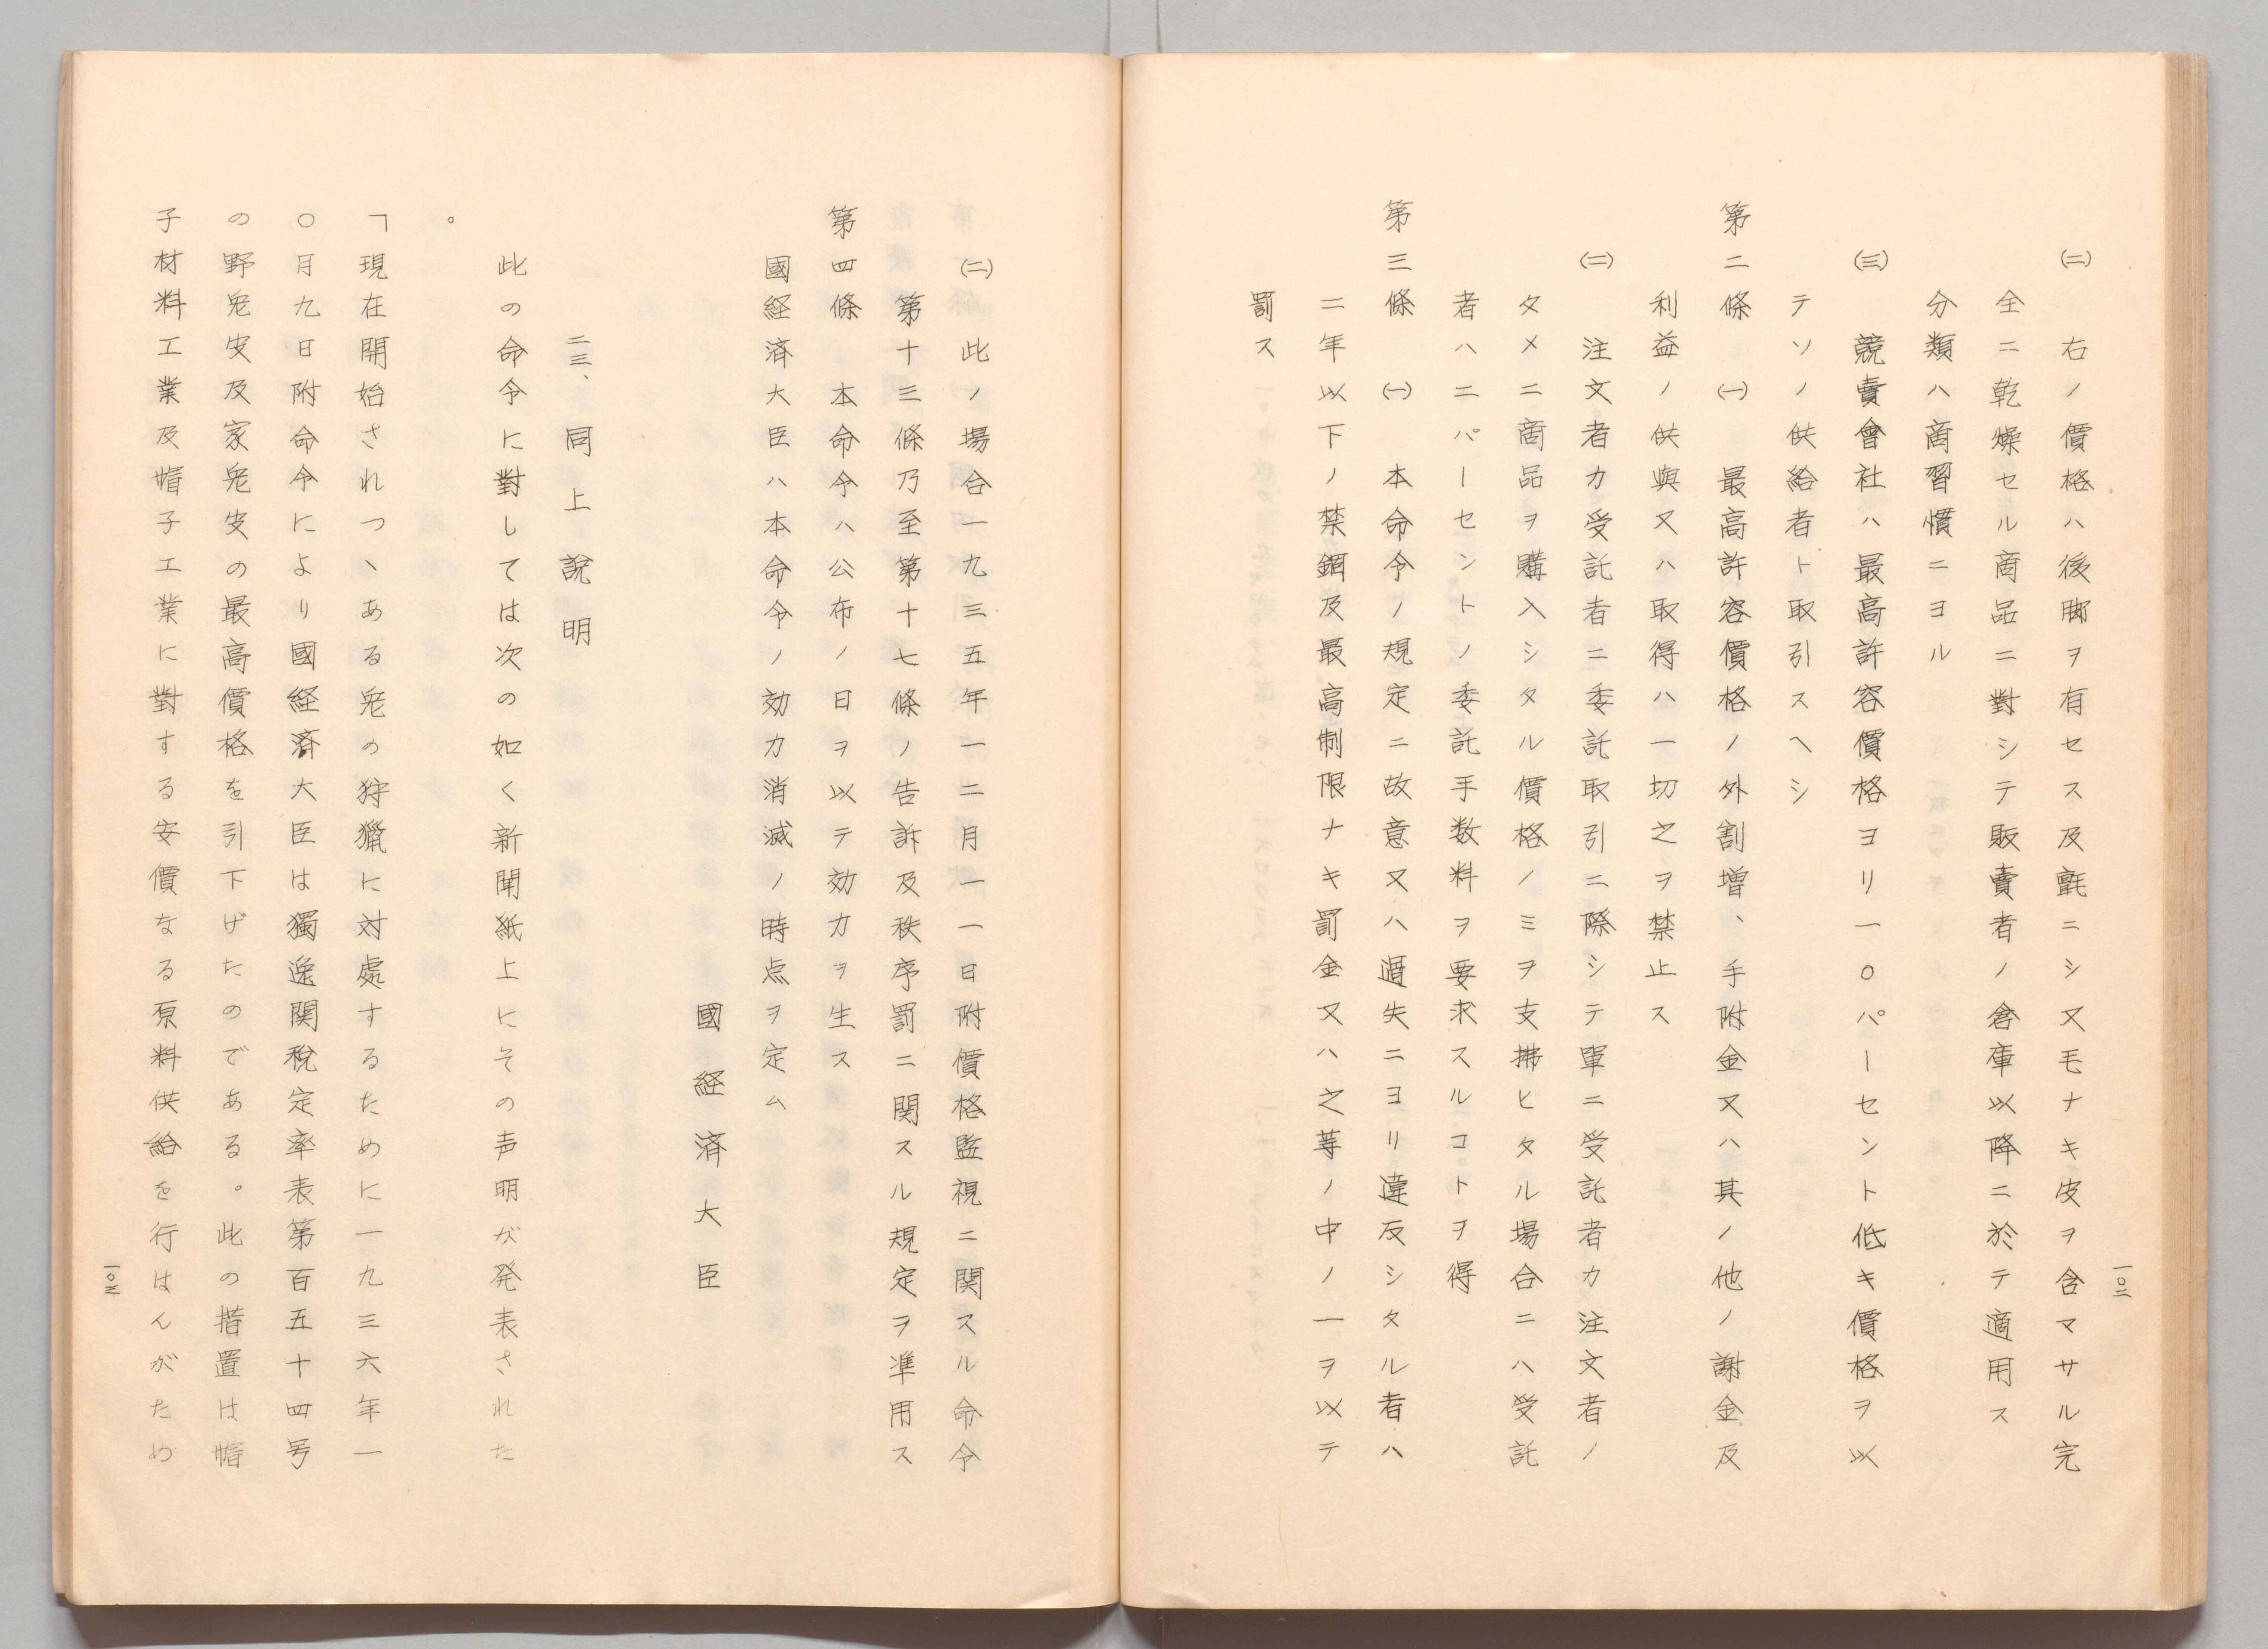 ㈡　右ノ價格ハ後脚ヲ有セス及氈ニシ又毛ナキ皮ヲ含マサル完
全ニ乾燥セル商品ニ對シテ販賣者ノ倉庫以降ニ於テ適用ス
分類ハ商習慣ニヨル
㈢　競賣會社ハ最高許容價格ヨリ一〇パーセント低キ價格ヲ以
テソノ供給者ト取引スヘシ
第二條　㈠　最高許容價格ノ外割増、手附金又ハ其ノ他ノ謝金及
利益ノ供與又ハ取得ハ一切之ヲ禁止ス
㈡　注文者カ受託者ニ委託取引ニ際シテ單ニ受託者カ注文者ノ
タメニ商品ヲ購入シタル價格ノミヲ支拂ヒタル場合ニハ受託
者ハ二パーセントノ委託手数料ヲ要求スルコトヲ得
第三條　㈠　本命令ノ規定ニ故意又ハ過失ニヨリ違反シタル者ハ
二年以下ノ禁錮及最高制限ナキ罰金又ハ之等ノ中ノ一ヲ以テ
罰ス
一〇二
㈡　此ノ場合一九三五年一二月一一日附價格監視ニ関スル命令
第十三條乃至第十七條ノ告訴及秩序罰ニ関スル規定ヲ準用ス
第四條　本命令ハ公布ノ日ヲ以テ効力ヲ生ス
國経済大臣ハ本命令ノ効力消滅ノ時点ヲ定ム
國経済大臣
二三、同上說明
此の命令に對しては次の如く新聞紙上にその声明が発表された
。
「現在開始されつゝある兎の狩獵に対處するために一九三六年一
〇月九日附命令により國経済大臣は獨逸関税定率表第百五十四号
の野兎皮及家兎皮の最高價格を引下げたのである。此の措置は帽
子材料工業及帽子工業に對する安價なる原料供給を行はんがため
一〇三